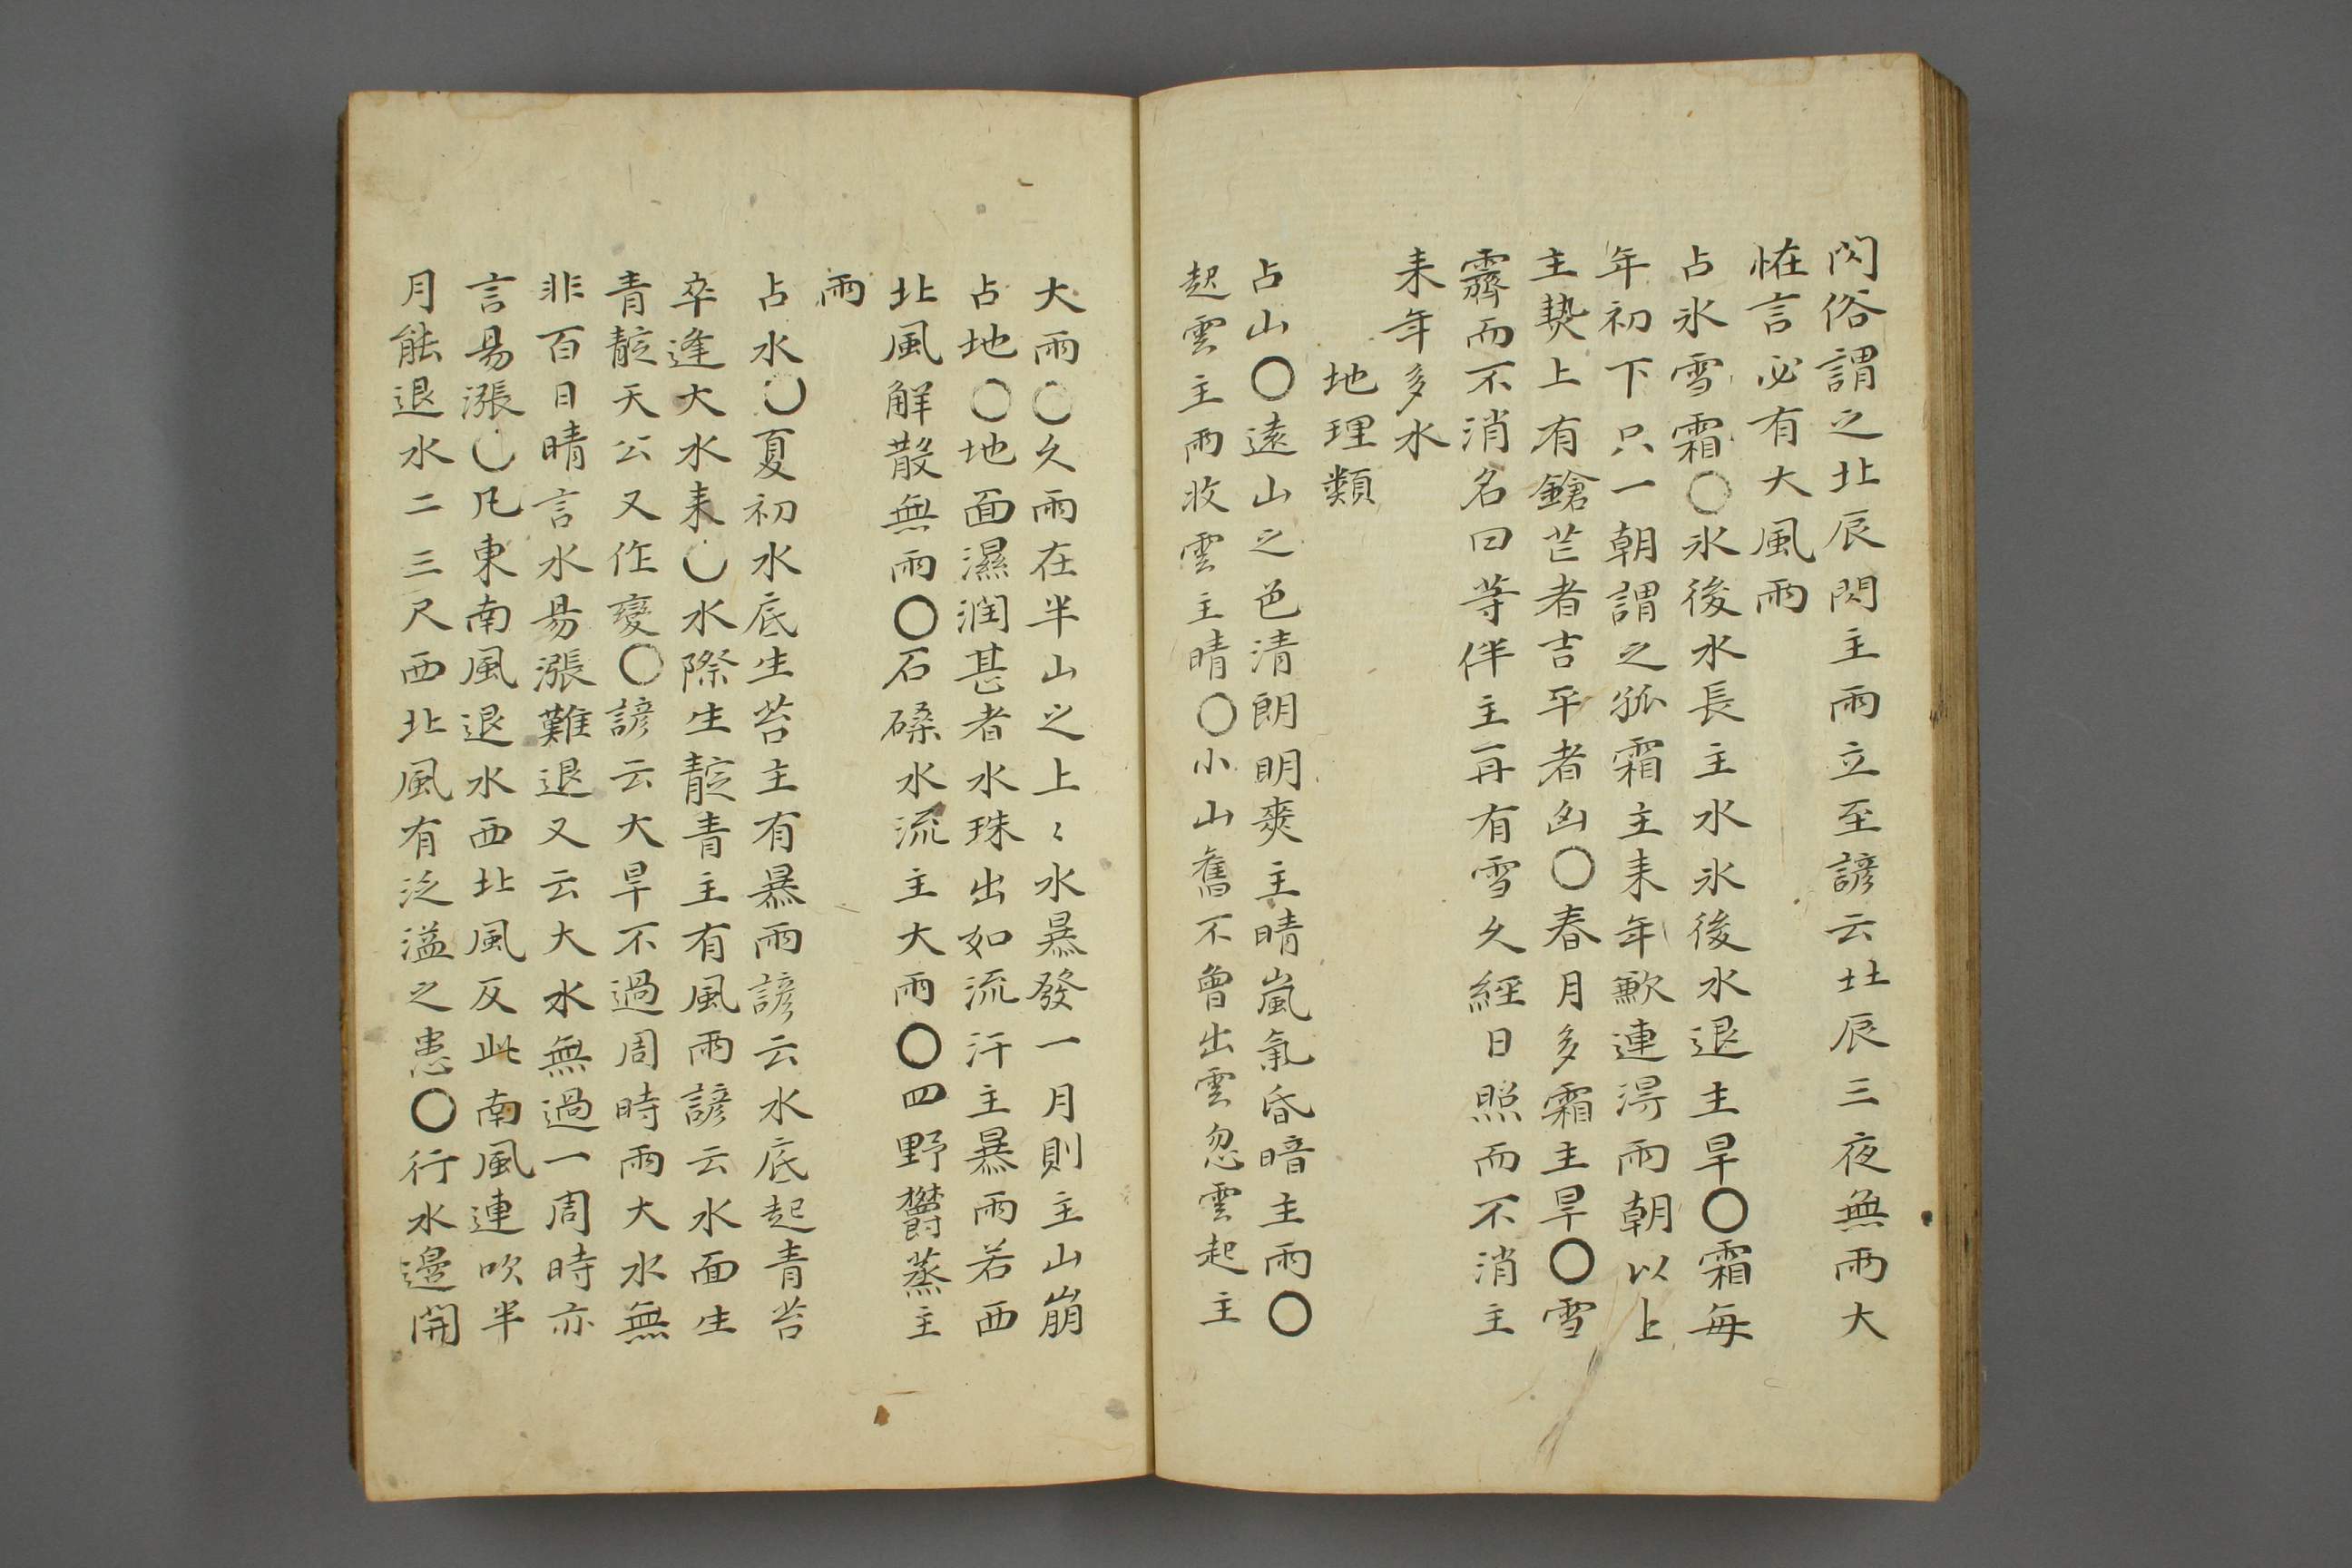 閃俗謂之北辰閃主雨立至諺云北辰三夜無雨大
恠言必有大風雨
占氷雪霜〇氷後水長主水氷後水退主旱〇霜每
年初下只一朝謂之孤霜主来年歉連淂兩朝以上
主𤍠上有鎗芒者吉平者凶〇春月多霜主旱〇雪
霽而不消名曰等伴主再有雪久經日照而不消主
来年多水
地理類
占山〇遠山之色清朗明爽主晴嵐氣昏暗主雨〇
起雲主雨收雲主晴〇小山舊不曾出雲忽雲起主
大雨〇久雨在半山之上〻水暴發一月則主山崩
占地〇地面濕潤甚者水珠出如流汗主暴雨若西
北風解散無雨〇石磉水流主大雨〇四野欝蒸主
雨
占水〇夏初水底生苔主有暴雨諺云水底起青苔
卒逢大水来〇水際生靛青主有風雨諺云水面生
青靛天公又作變〇諺云大旱不過周時雨大水無
非百日晴言水易漲難退又云大水無過一周時亦
言易漲〇凡東南風退水西北風反此南風連吹半
月能退水二三尺西北風有泛溢之患〇行水邊開